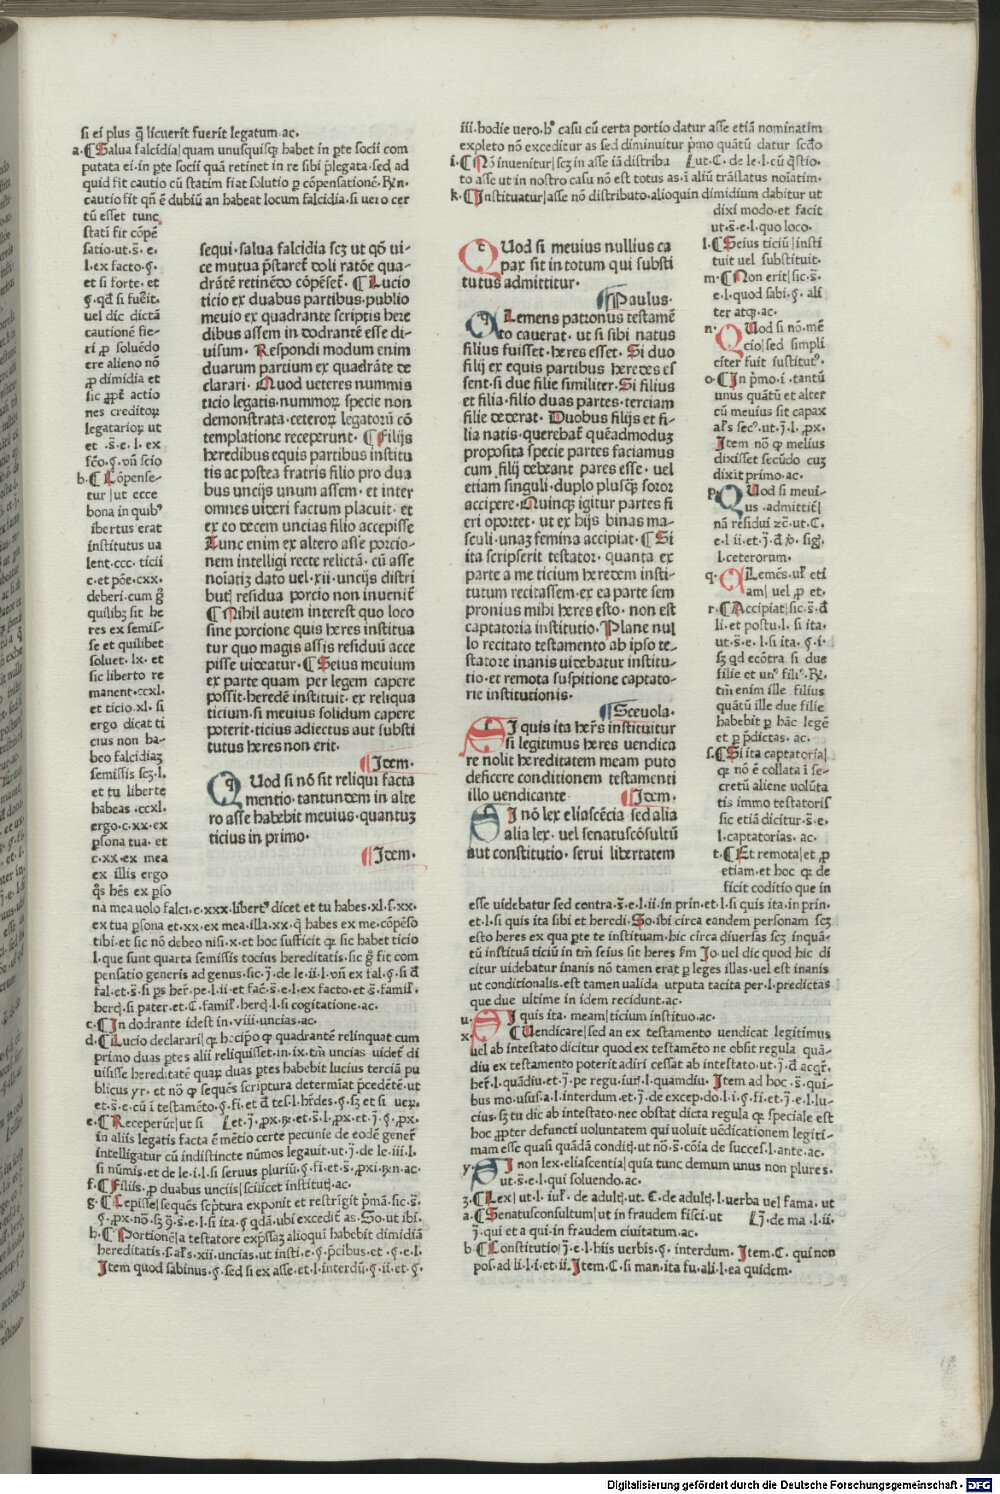 si ei plus q̃ licuerit fuerit legatum ac.
a. Salua falcidia quam unusquisq; habet in pte socii com
putata ei. in pte socii quā retinet in re sibi p̄legata. sed ad
quid fit cautio cū statim fiat solutio p cōpensationē. 
cautio fit qn̄ ē dubiū an habeat locum falcidia. si uero cer
tū esset tunc
statī fit cōpē
satio. ut. s̄. e.
l. ex facto. §.
et si forte. et
§. qd̄ si fuẽit.
uel dic dictā
cautionē fie-
ri p soluēdo
ere alieno nō
p dimidia et
sic actio
nes creditoꝝ
legatarioꝝ ut
et .s̄. e. l. ex
fcō. §. un̄ scio
b. Cōpense-
tur ut ecce
bona in quibꝰ
ibertus erat
institutus ua
lent. ccc. ticii
c. et pōe. cxx.
deberi. cum g̃
quilibꝫ sit he
res ex semis-
se et quilibet
soluet. lx. et
sic liberto re
manent. ccxl.
et ticio. xl. si
ergo dicat ti
cius non ha-
beo falcidiaꝫ
semissis scꝫ. l.
et tu liberte
habeas .ccxl.
ergo. c. xx. ex
psona tua. et
c. xx. ex mea
ex illis ergo
q̄s hēs ex pso
na mea uolo falci. c. xxx. libertꝰ dicet et tu habes .xl. s. xx.
ex tua psona et. xx. ex mea. illa. xx. q̄ habes ex me. cōpēso
tibi. et sic nō debeo nisi. x. et hoc sufficit qꝫ sic habet ticio
l. que sunt quarta semissis tocius hereditatis. sic g̃ fit com
pensatio generis ad genus. sic.
c. In dodrante idest in. viii. uncias. ac.
d. Lucio declarari qꝫ p quadrantē relinquat cum
primo duas ptes alii reliquisset. in. ix. tm̄ uncias uidet̄ di
uisisse hereditatē quaꝝ duas ptes habebit lucius terciā pu
blicus 
e. Receperūt ut si
in aliis legatis facta ē mētio certe pecunie de eodē gener̄
intelligatur cū indistincte nūmos legauit. ut. j̄. de le. iii. l.
si nūmis. et de le. i. l. si seruus pluriū. §. fi. et s̄. ac.
f. Filiis. p duabus unciis scilicet institutꝭ. ac.
g. Cepisse sequēs sc̄ptura exponit et restrīgit p̄mā. sic. s̄.
h. Portionē a testatore exp̄ssaꝫ alioqui habebit dimidiā
hereditatis. s. al's. xii. uncias. ut insti. e. §. p̄cibus et. §. e. l.
Item quod sabinus. §. sed si ex asse. et. l. interdū. §. ii. et. §.
sequi. salua falcidia scꝫ ut qō ui-
ce mutua p̄staret̄ doli ratōe qua-
drātē retinēdo cōpēset̄. Lucio
ticio ex duabus partibus. publio
meuio ex quadrante scriptis here
dibus assem in dodrantē esse di-
uisum. Respondi modum enim
duarum partium ex quadrāte de
clarari. Quod ueteres nummis
ticio legatis. nummoꝝ specie non
demonstrata. ceteroꝝ legatorū cō
templatione receperunt. Filijs
heredibus equis partibus institu
tis ac postea fratris filio pro dua
bus uncijs unum assem. et inter
omnes uideri factum placuit. et
ex eo decem uncias filio accepisse
Tunc enim ex altero asse porcio-
nem intelligi recte relictā. cū asse
noīatiꝫ dato uel. xii. uncijs distri
butꝭ residua porcio non inuenit̄
Nihil autem interest quo loco
sine porcione quis heres institua
tur quo magis assis residuū acce
pisse uideatur. Seius meuium
ex parte quam per legem capere
possit. heredē instituit. ex reliqua
ticium. si meuius solidum capere
poterit. ticius adiectus aut substi
tutus heres non erit.
Idem.
Quod si nō sit reliqui facta
mentio. tantundem in alte
ro asse habebit meuius. quantuꝫ
ticius in primo.
Idem.
iii. hodie uero. hº casu cū certa portio datur asse etiā nominatim
expleto nō exceditur as sed diminuitur p̄mo quātū datur scd̄o
i. Nō inuenitur scꝫ in asse iā distriba ut. C. de le. l. cū q̄stio.
to asse ut in nostro casu nō est totus as. ī aliū trāslatus noīatim.
k. Instituatur asse nō distributo. alioquin dimidium dabitur ut
dixi modo. et facit
ut. s̄. e. l. quo loco.
l. Seius ticiū insti
tuit uel substituit.
m. Non erit sic. s̄.
e. l. quod sabi. §. ali
ter atqꝫ. ac.
n. Quod si nō. mē
cio sed simpli
citer fuit sustitutꝰ.
o. In p̄mo. i. tantū
unus quātū et alter
cū meuius sit capax
al's secꝰ. ut. j̄. l. px.
Item nō qꝫ melius
dixisset secūdo cuꝫ
dixit primo. ac.
p. Quod si meui-
us. admittit̄
nā residui 
l. ceterorum.
q. Clemēs. etī
am uel p et.
r. Accipiat sic. s̄. 
li. et postu. l. si ita.
ut. s̄. e. l. si ita. §. i.
sꝫ qd ecōtra si due
filie et unꝰ filiꝰ.
tm̄ enim ille filius
quātū ille due filie
habebit p hāc legē
et p p̄dictas. ac.
s. Si ita captatoria
qꝫ nō ē collata ī se-
cretū aliene volūta
tis immo testatoris
sic etiā dicitur. s̄. e.
l. captatorias. ac.
t. Et remota et p
etiam. et hoc qꝫ de
ficit cōditio que in
esse uidebatur sed contra. s̄. e. l. ii. in prin. et. l. si quis ita. in prin.
et. l. si quis ita sibi et heredi. So. ibi circa eandem personam scꝫ
esto heres ex qua pte te instituam. hic circa diuersas scꝫ inquā-
tū instituā ticiū in tm̄ seius sit heres Jo. uel dic quod hic di
citur uidebatur inanis nō tamen erat p leges illas. uel est inanis
ut conditionalis. est tamen ualida utputa tacita per. l. predictas
que due ultime in idem recidunt. ac.
u. Si quis ita. meam ticium instituo. ac.
x. Uendicare sed an ex testamento uendicat legitimus
uel ab intestato dicitur quod ex testamēto ne obsit regula quā-
diu ex testamento poterit adiri cessat ab intestato. ut. j̄. 
l. quādiu. et. j̄. pe regu. iur̄. l. quamdiu. Item ad hoc. s̄. qui-
bus mo. usus. a. l. interdum. et. j̄. de excep. do. l. i. §. fi. et. j̄. e. l. lu-
cius. sꝫ tu dic ab intestato. nec obstat dicta regula qꝫ speciale est
hoc ꝓpter defuncti uoluntatem qui uoluit uēdicationem legiti-
mam esse quasi quādā conditꝭ. ut nō. s̄. cōia de succes. l. ante. ac.
y. Si non lex. eliascentia quia tunc demum unus non plures.
ut. s̄. e. l. qui soluendo. ac.
z. Lex ut. l. iul'. de adultꝭ. ut. C. de adultꝭ. l. uerba uel fama. ut
a. Senatusconsultum ut in fraudem fisci. ut l. j̄. de ma. l. ii.
j̄. qui et a qui. in fraudem ciuitatum. ac.
b. Constitutio j̄. e. l. hiis uerbis. §. interdum. Item. C. qui non
pos. ad li. l. i. et. ii. Item. C. si man. ita fu. ali. l. ea quidem.
Quod si meuius nullius ca
pax sit in totum qui substi
tutus admittitur.
Paulus.
Clemens patronus testamē
to cauerat. ut si sibi natus
filius fuisset. heres esset. Si duo
filij ex equis partibus heredes es
sent. si due filie similiter. Si filius
et filia. filio duas partes. terciam
filie dederat. Duobus filijs et fi-
lia natis. querebat̄ quēadmoduꝫ
proposita specie partes faciamus
cum filij debeant pares esse. uel
etiam singuli. duplo plusqꝫ soror
accipere. Quinqꝫ igitur partes fi
eri oportet. ut ex hijs binas ma-
sculi. unaꝫ femina accipiat. Si
ita scripserit testator. quanta ex
parte a me ticium heredem insti-
tutum recitassem. ex ea parte sem
pronius mihi heres esto. non est
captatoria institutio. Plane nul
lo recitato testamento ab ipso te-
statore inanis uidebatur institu-
tio. et remota suspitione captato-
rie institutionis.
Sceuola.
Si quis ita her̄s instituitur
si legitimus heres uendica
re nolit hereditatem meam puto
deficere conditionem testamenti
illo uendicante. Idem.
Si nō lex eliascēcia sed alia
alia lex. uel senatuscōsultū
aut constitutio. serui libertatem
Digitalisierung gefördert durch die Deutsche Forschungsgemeinschaft - DFG